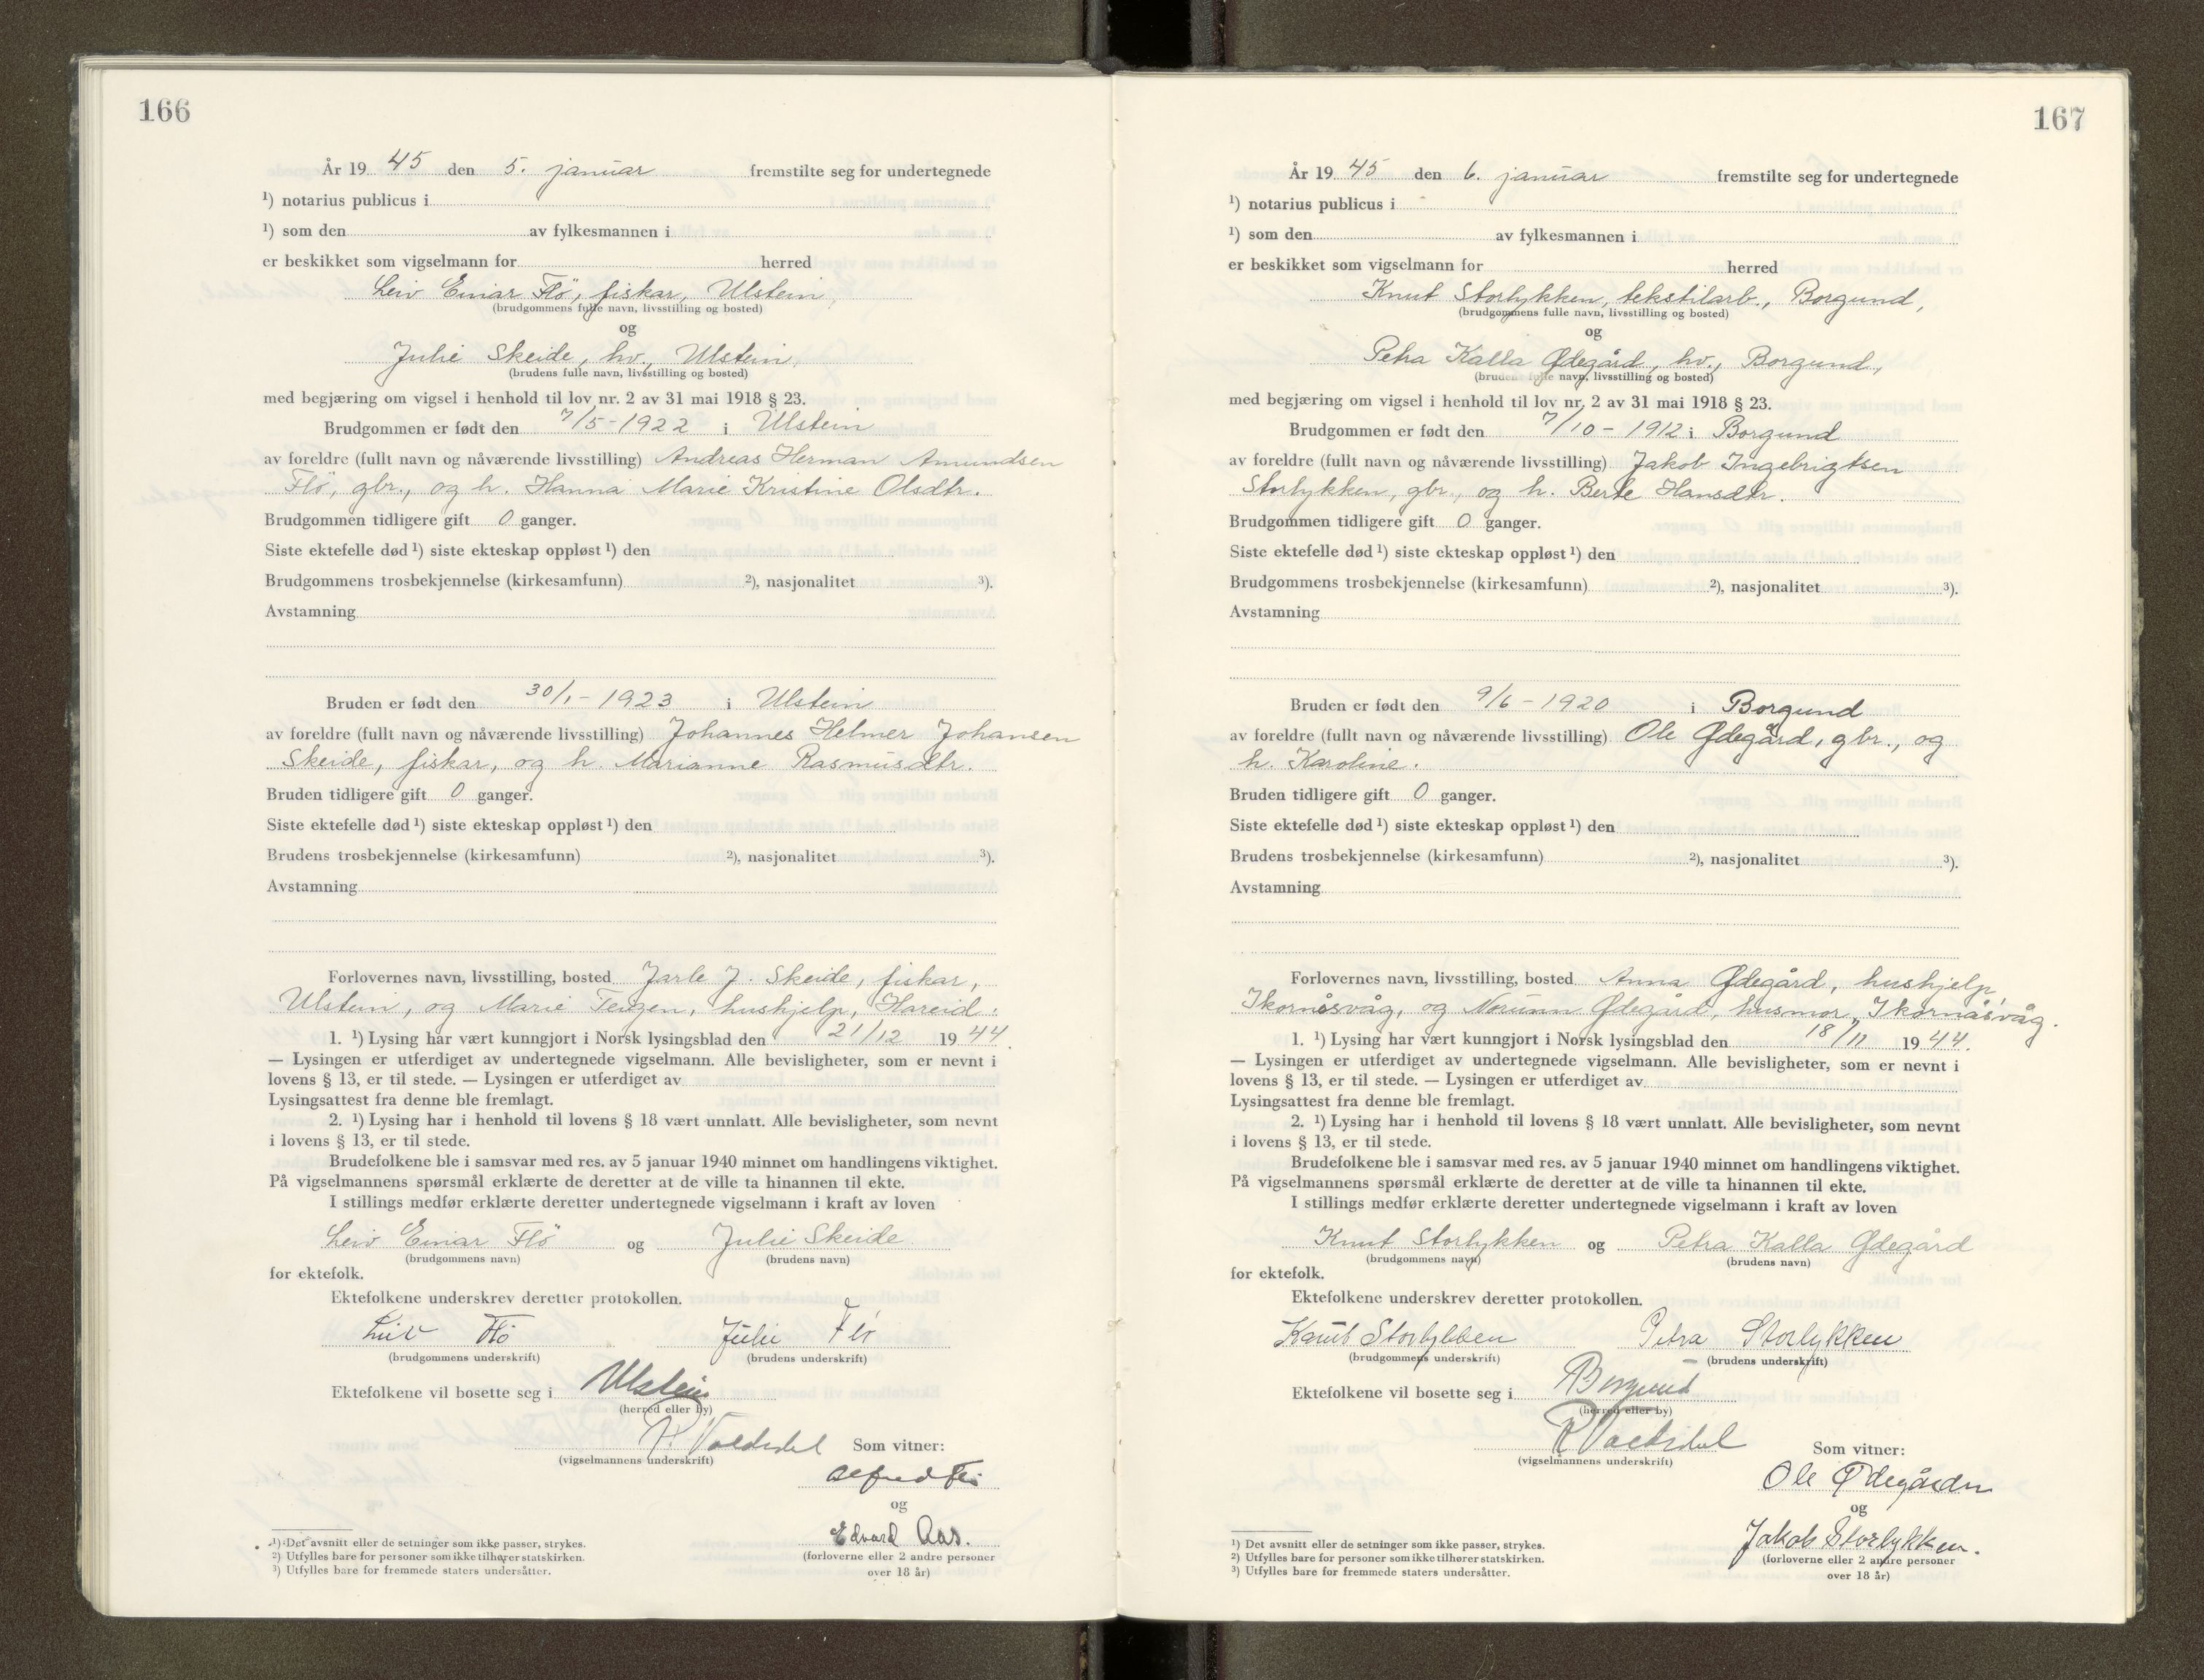 166
År 19 45 den 5. januar fremstilte seg for undertegnede
¹) notarius publicus i
¹) som den av fylkesmannen i
er beskikket som vigselmann for herred
Leiv Einar Flö, fiskar, Ulstein,
(brudgommens fulle navn, livsstilling og bosted)
og
Julie Skeide, hv., Ulstein,
(brudens fulle navn, livsstilling og bosted)
med begjæring om vigsel i henhold til lov nr. 2 av 31 mai 1918 § 23.
Brudgommen er født den 7/5-1922 i Ulstein
av foreldre (fullt navn og nåværende livsstilling) Andreas Herman Amundsen
Flö, gbr., og h. Hanna Marie Kristine Olsdtr.
Brudgommen tidligere gift 0 ganger.
Siste ektefelle død ¹) siste ekteskap oppløst ¹) den
Brudgommens trosbekjennelse (kirkesamfunn) ²), nasjonalitet ³).
Avstamning
Bruden er født den 30/1-1923 i Ulstein
av foreldre (fullt navn og nåværende livsstilling) Johannes Helmer Johansen
Skeide, fiskar, og h. Marianne Rasmusdtr.
Bruden tidligere gift 0 ganger.
Siste ektefelle død ¹) siste ekteskap oppløst ¹) den
Brudens trosbekjennelse (kirkesamfunn) ²), nasjonalitet ³).
Avstamning
Forlovernes navn, livsstilling, bosted Jarle J. Skeide, fiskar,
Ulstein, og Marie Teigen, hushjelp, Hareid.
1. ¹) Lysing har vært kunngjort i Norsk lysingsblad den 21/12 19 44.
— Lysingen er utferdiget av undertegnede vigselmann. Alle bevisligheter, som er nevnt i
lovens § 13, er til stede. — Lysingen er utferdiget av
Lysingsattest fra denne ble fremlagt.
2. ¹) Lysing har i henhold til lovens § 18 vært unnlatt. Alle bevisligheter, som nevnt
i lovens § 13, er til stede.
Brudefolkene ble i samsvar med res. av 5 januar 1940 minnet om handlingens viktighet.
På vigselmannens spørsmål erklærte de deretter at de ville ta hinannen til ekte.
I stillings medfør erklærte deretter undertegnede vigselmann i kraft av loven
Leiv Einar Flö og Julie Skeide
(brudgommens navn) (brudens navn)
for ektefolk.
Ektefolkene underskrev deretter protokollen.
Leiv Flö Julie Flö
(brudgommens underskrift) (brudens underskrift)
Ektefolkene vil bosette seg i Ulstein
(herred eller by)
Som vitner:
(vigselmannens underskrift)
Alfred Flö
og
Edvard Aas.
(forloverne eller 2 andre personer
over 18 år)
¹) Det avsnitt eller de setninger som ikke passer, strykes.
²) Utfylles bare for personer som ikke tilhører statskirken.
³) Utfylles bare for fremmede staters undersåtter.
167
År 19 45 den 6. januar fremstilte seg for undertegnede
¹) notarius publicus i
¹) som den av fylkesmannen i
er beskikket som vigselmann for herred
Knut Storlykken, tekstilarb., Borgund,
(brudgommens fulle navn, livsstilling og bosted)
og
Petra Kalla Ødegård, hv., Borgund,
(brudens fulle navn, livsstilling og bosted)
med begjæring om vigsel i henhold til lov nr. 2 av 31 mai 1918 § 23.
Brudgommen er født den 7/10-1912 i Borgund
av foreldre (fullt navn og nåværende livsstilling) Jakob Ingebrigtsen
Storlykken, gbr., og h. Berte Hansdtr.
Brudgommen tidligere gift 0 ganger.
Siste ektefelle død ¹) siste ekteskap oppløst ¹) den
Brudgommens trosbekjennelse (kirkesamfunn) ²), nasjonalitet ³).
Avstamning
Bruden er født den 9/6-1920 i Borgund
av foreldre (fullt navn og nåværende livsstilling) Ole Ødegård, gbr., og
h. Karoline.
Bruden tidligere gift 0 ganger.
Siste ektefelle død ¹) siste ekteskap oppløst ¹) den
Brudens trosbekjennelse (kirkesamfunn) ²), nasjonalitet ³).
Avstamning
Forlovernes navn, livsstilling, bosted Anna Ødegård, hushjelp,
Ikornåsvåg, og Norunn Ødegård, husmor, Ikornåsvåg.
1. ¹) Lysing har vært kunngjort i Norsk lysingsblad den 18/11 19 44.
— Lysingen er utferdiget av undertegnede vigselmann. Alle bevisligheter, som er nevnt i
lovens § 13, er til stede. — Lysingen er utferdiget av
Lysingsattest fra denne ble fremlagt.
2. ¹) Lysing har i henhold til lovens § 18 vært unnlatt. Alle bevisligheter, som nevnt
i lovens § 13, er til stede.
Brudefolkene ble i samsvar med res. av 5 januar 1940 minnet om handlingens viktighet.
På vigselmannens spørsmål erklærte de deretter at de ville ta hinannen til ekte.
I stillings medfør erklærte deretter undertegnede vigselmann i kraft av loven
Knut Storlykken og Petra Kalla Ødegård
(brudgommens navn) (brudens navn)
for ektefolk.
Ektefolkene underskrev deretter protokollen.
Knut Storlykken Petra Storlykken
(brudgommens underskrift) (brudens underskrift)
Ektefolkene vil bosette seg i Borgund
(herred eller by)
Som vitner:
(vigselmannens underskrift)
Ole Ødegården
og
Jakob Storlykken.
(forloverne eller 2 andre personer
over 18 år)
¹) Det avsnitt eller de setninger som ikke passer, strykes.
²) Utfylles bare for personer som ikke tilhører statskirken.
³) Utfylles bare for fremmede staters undersåtter.